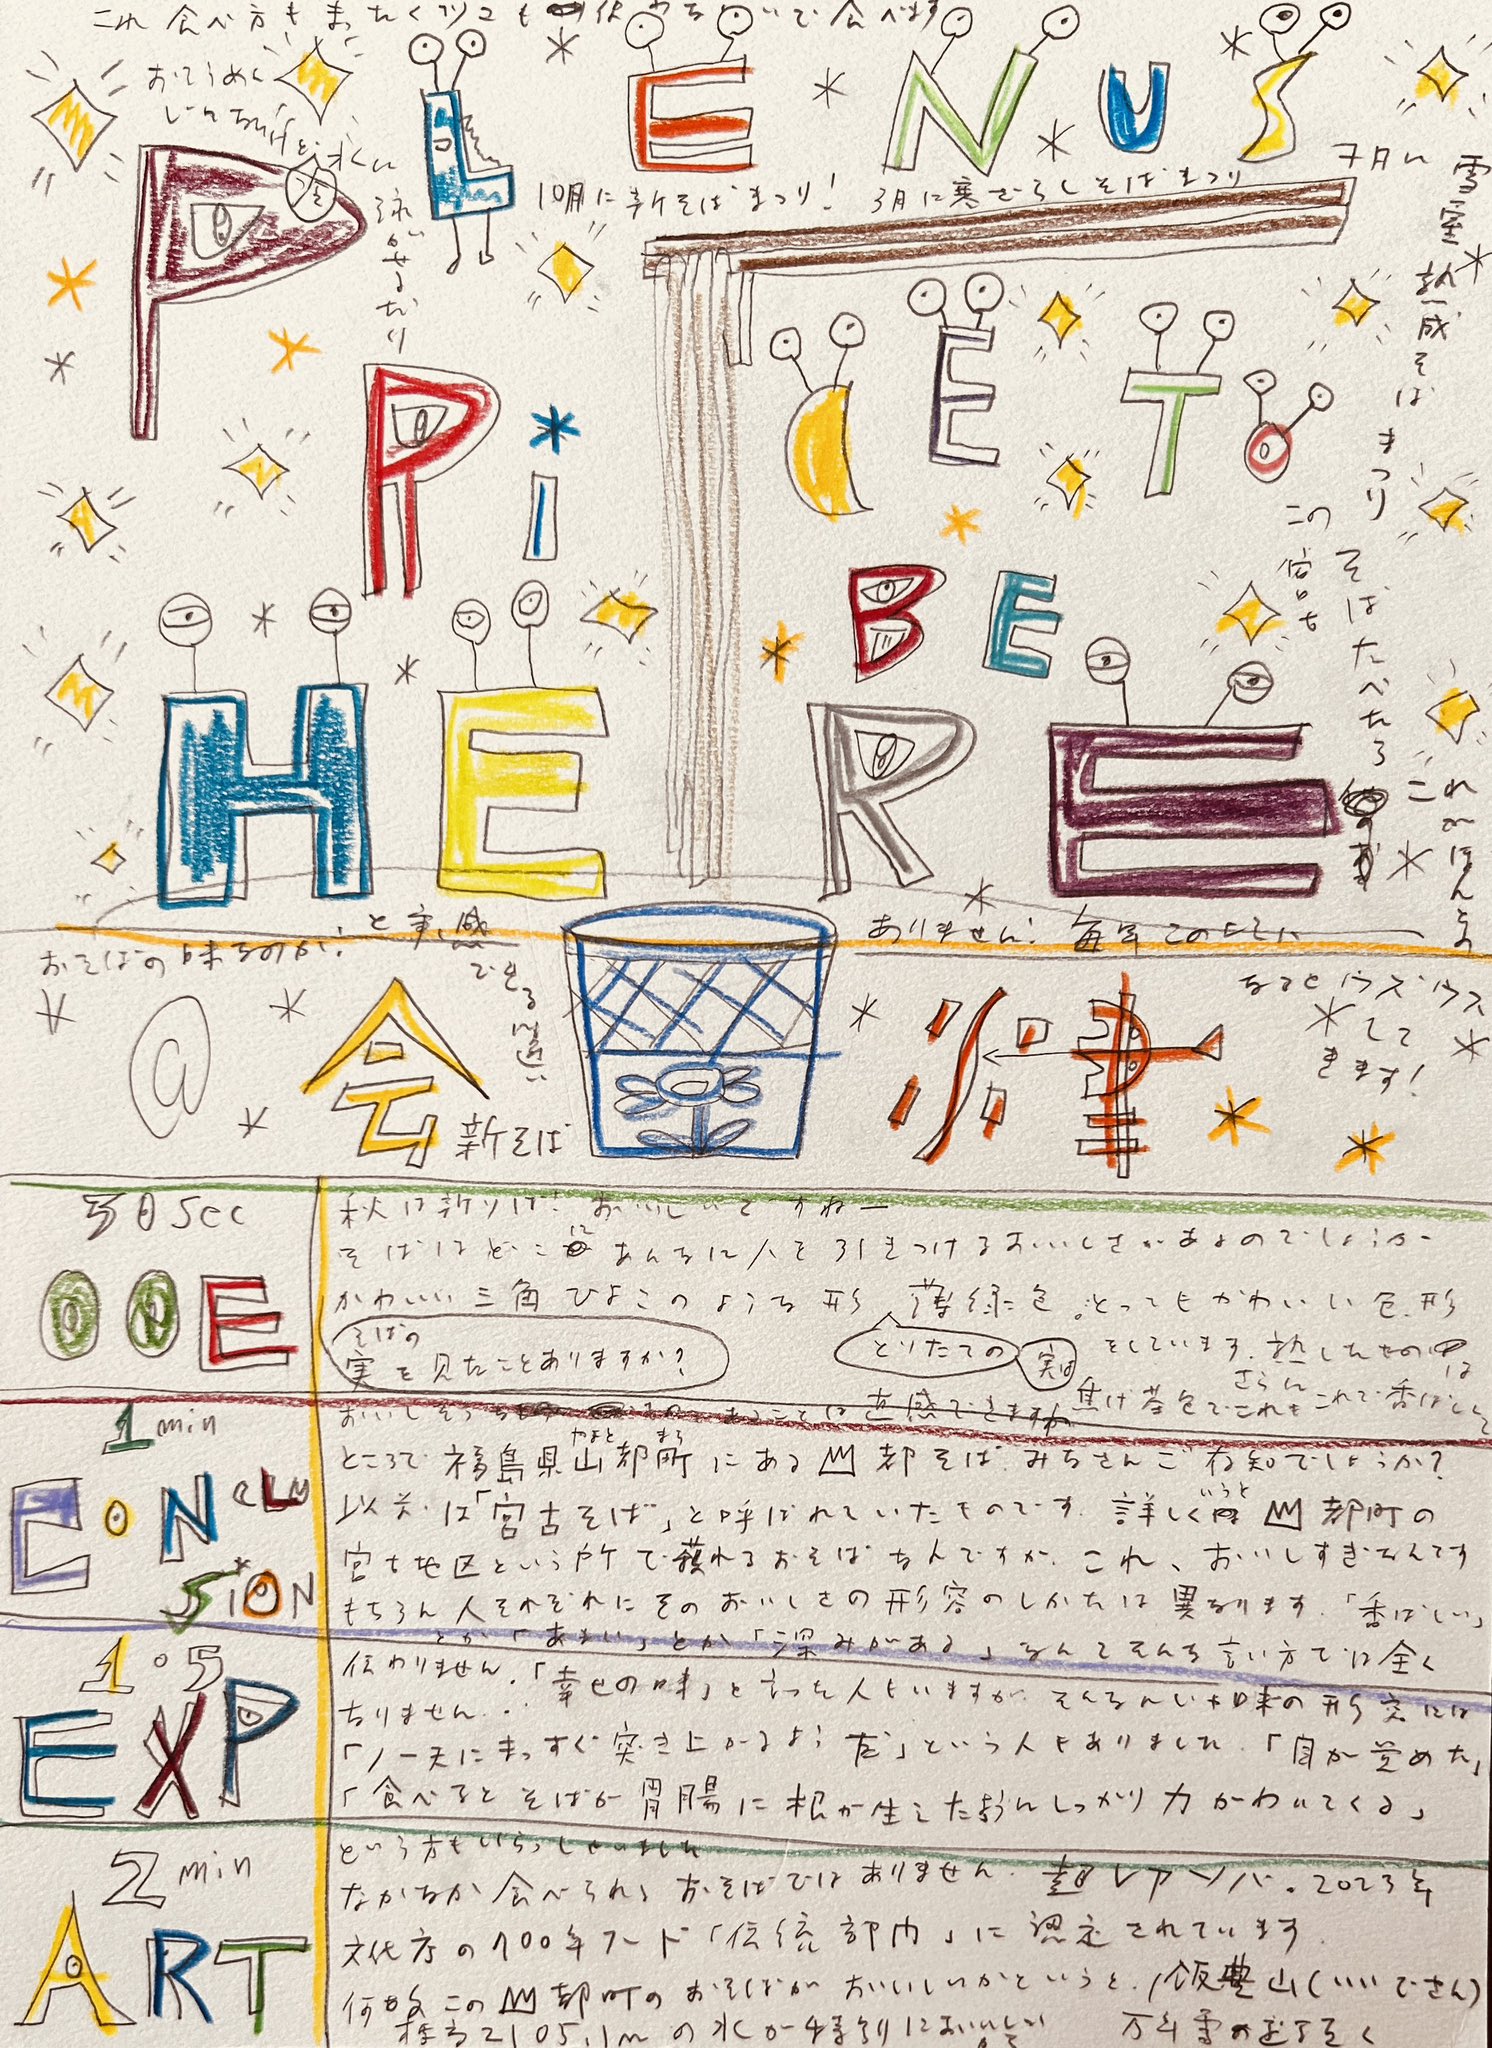 これ食べ方もまったくツユも使わないで食べます
PLENUS
おそうめん
水に
泳がせるだけ
10月に新そばまつり! 3月に寒ざらしそばまつり
7月に
雪室熟成そばまつり
PPI
CETO
この
そばたべたら
これがほんとの
BE
HERE
おそばの味なのか!と実感
できる遥い
新そば
ありません!毎年このように
なるとウズウズ
して
きます!
@会津
30sec
OOE
秋は新そば!おいしいですねー
そばはどこにあんなに人を引きつけるおいしさがあるのでしょうか
かわいい三角ひよこのような形、薄緑色。とってもかわいい色、形
とりたての実は
をしています。熱したものは
そばの実を見たことありますか?
焦げ茶色でこれもこれで香ばしくて
おいしそう
直感できます
1min
CONCLUSION
ところで福島県山都町にある山都そば、みなさんご存知でしょうか?
やまと まち
以前は「宮古そば」と呼ばれていたものです。詳しくいうと山都町の
宮古地区という所で穫れるおそばなんですが、これ、おいしすぎなんです
もちろん人それぞれにそのおいしさの形容のしかたは異なります。「香ばしい」
とか「あまい」とか「深みがある」なんてそんな言い方では全く
1.5
EXP
伝わりません。「幸せの味」と言った人もいますが、そんなんじゃ味の形容には
なりません。
「ノー天にまっすぐ突き上がるようだ」という人もありました。「目が覚めた」
「食べるとそばが胃腸に根が生えたぶんしっかり力がわいてくる」
という方もいらっしゃいました
2min
ART
なかなか食べられるおそばではありません。超レアソバ。2023年
文化庁の100年フード「伝統部門」に認定されています。
何故この山都町のおそばがおいしいかというと、飯豊山(いいでさん)
標高2105.1mの水が特別においしい
万年雪